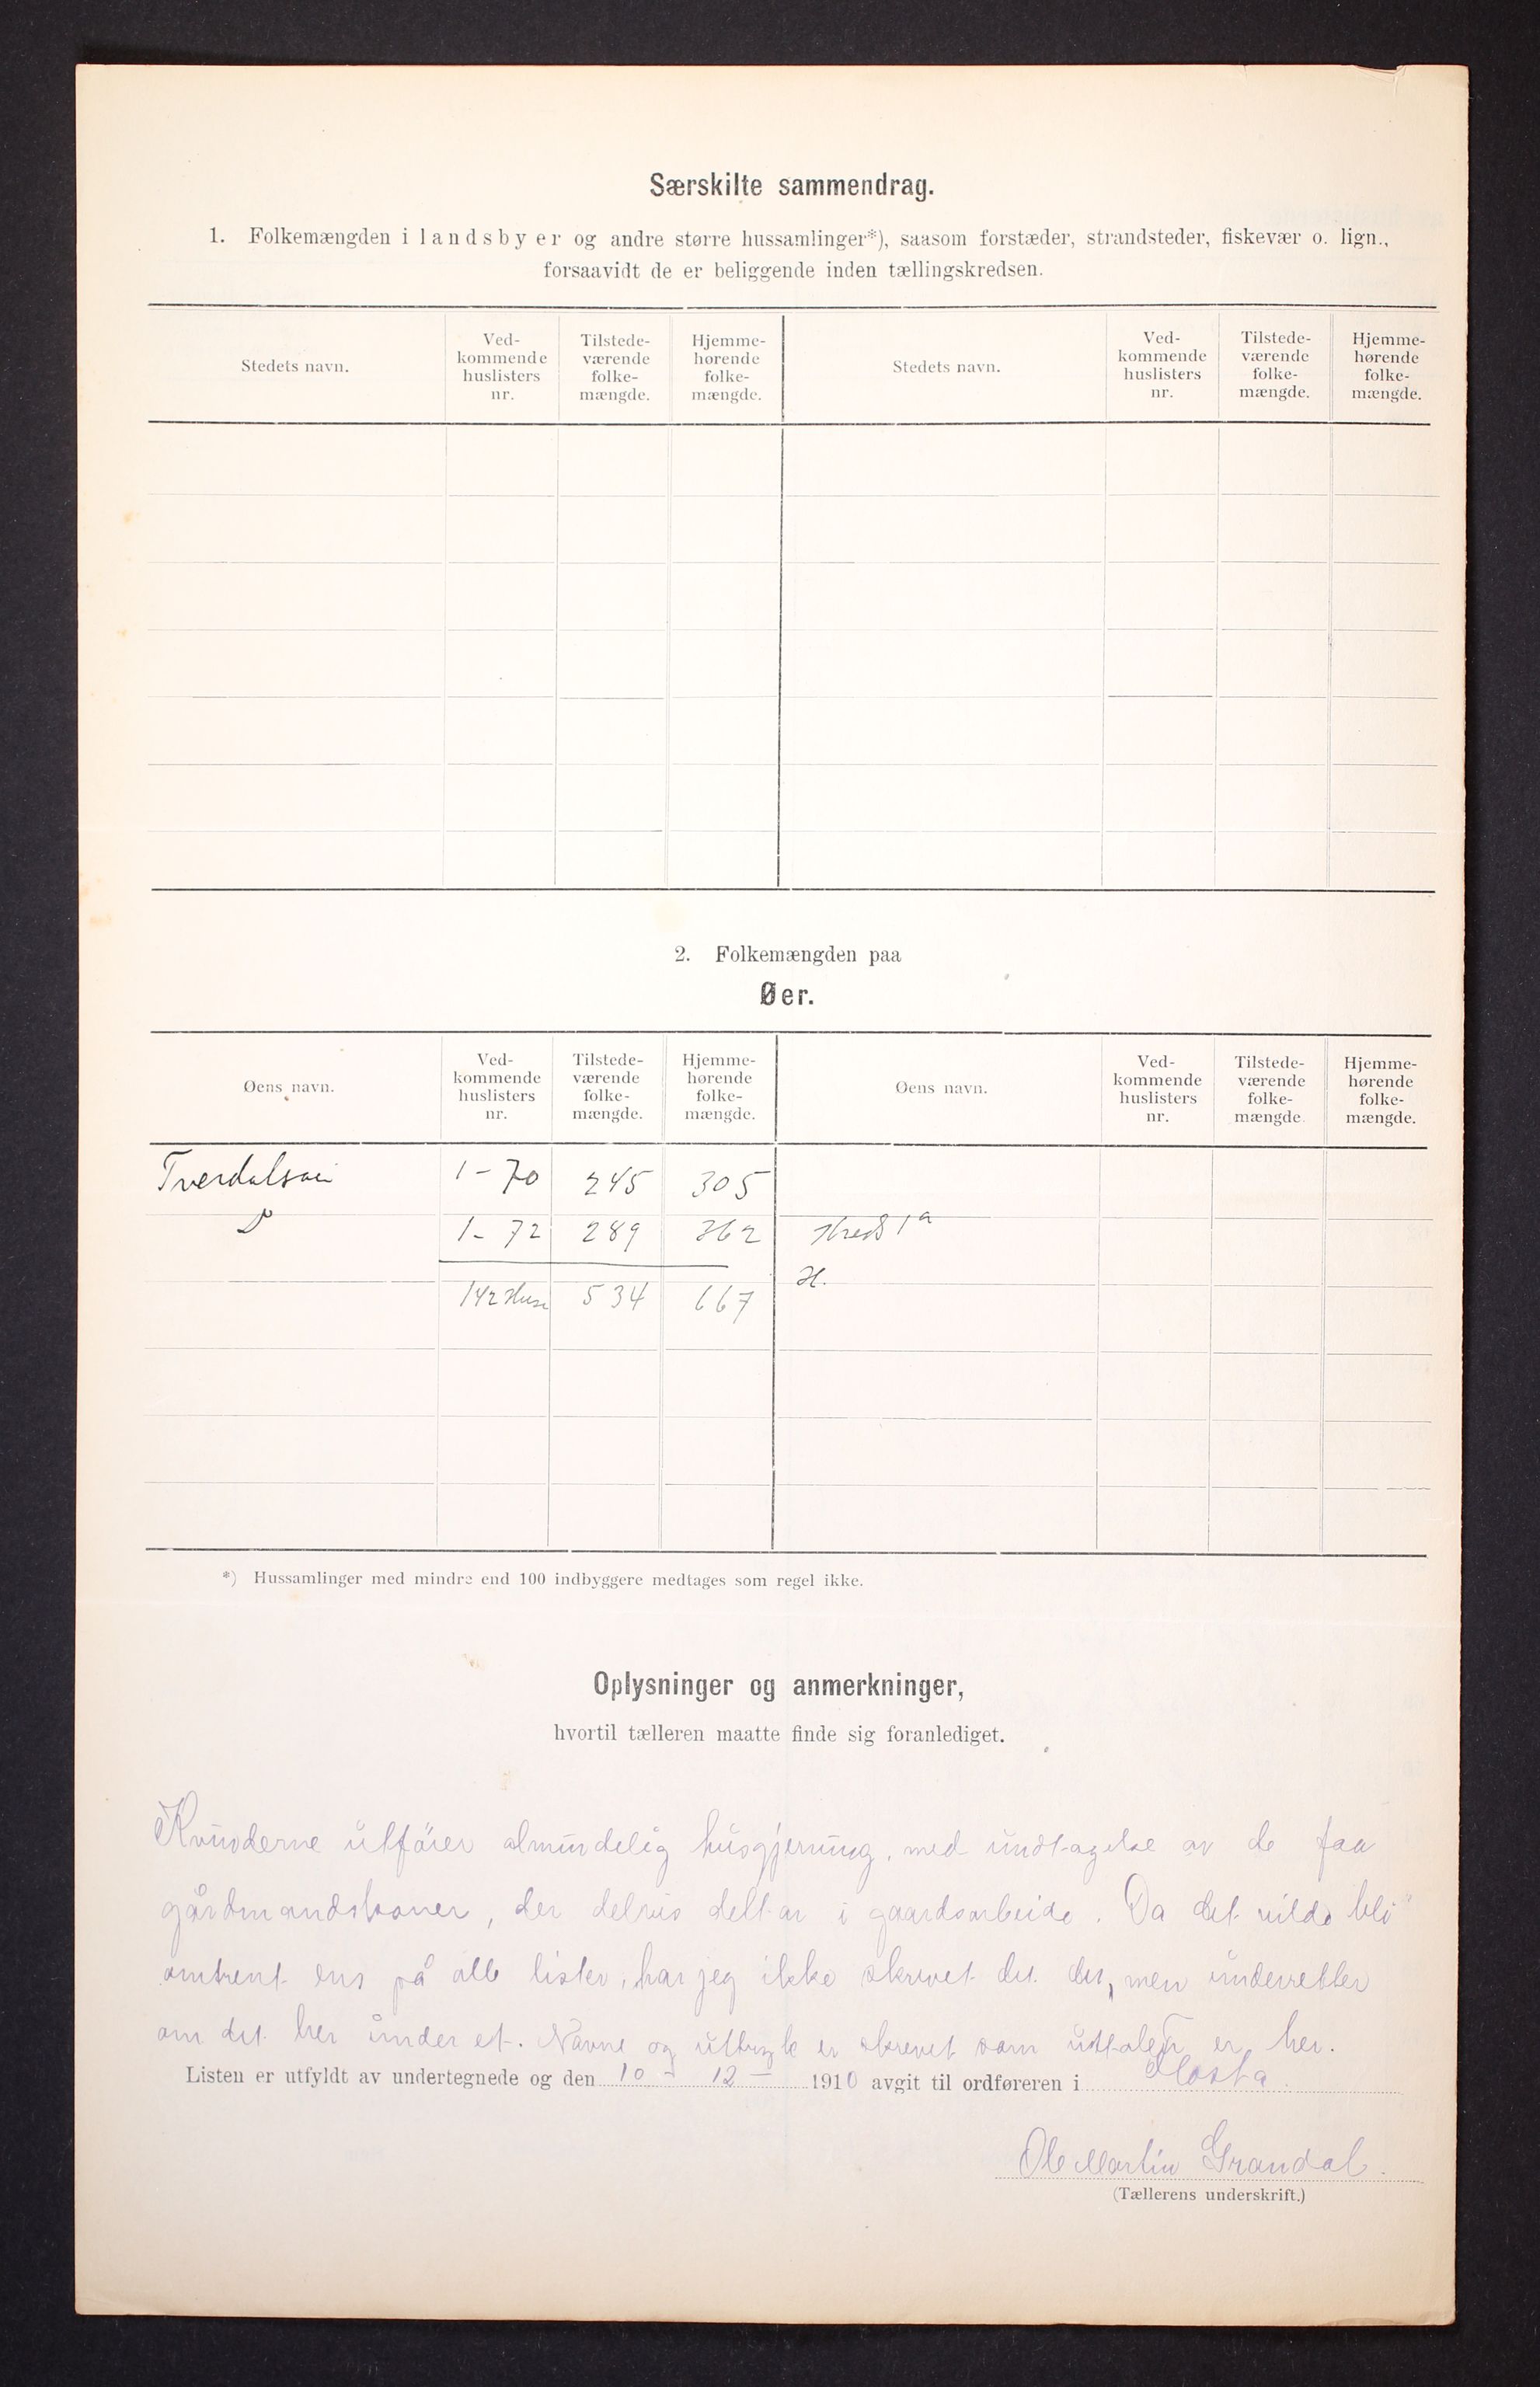 Særskilte sammendrag.
1. Folkemængden i landsbyer og andre større hussamlinger*), saasom forstæder, strandsteder, fiskevær o. lign.,
forsaavidt de er beliggende inden tællingskredsen.
Stedets navn. Ved-kommende huslisters nr. Tilstede-værende folke-mængde. Hjemme-hørende folke-mængde. Stedets navn. Ved-kommende huslisters nr. Tilstede-værende folke-mængde. Hjemme-hørende folke-mængde.
2. Folkemængden paa
Øer.
Øens navn. Ved-kommende huslisters nr. Tilstede-værende folke-mængde. Hjemme-hørende folke-mængde. Øens navn. Ved-kommende huslisters nr. Tilstede-værende folke-mængde. Hjemme-hørende folke-mængde.
1-70 245 305
1-72 289 362 Kreds 1a
142 Huse 534 667 H.
*) Hussamlinger med mindre end 100 indbyggere medtages som regel ikke.
Oplysninger og anmerkninger,
hvortil tælleren maatte finde sig foranlediget.
Kvinderne utfører almindelig husgjerning, med undtagelse av de faa
gårdmandskoner, der delvis deltar i gaardsarbeide. Da det vilde bli
omtrent ens på alle lister, har jeg ikke skrevet det der, men underretter
om det her under et. Navne og uttryk er skrevet som udtalen er her.
Listen er utfyldt av undertegnede og den 10 - 12 - 1910 avgit til ordføreren i Flosta.
Ole Martin Grandal.
(Tællerens underskrift.)